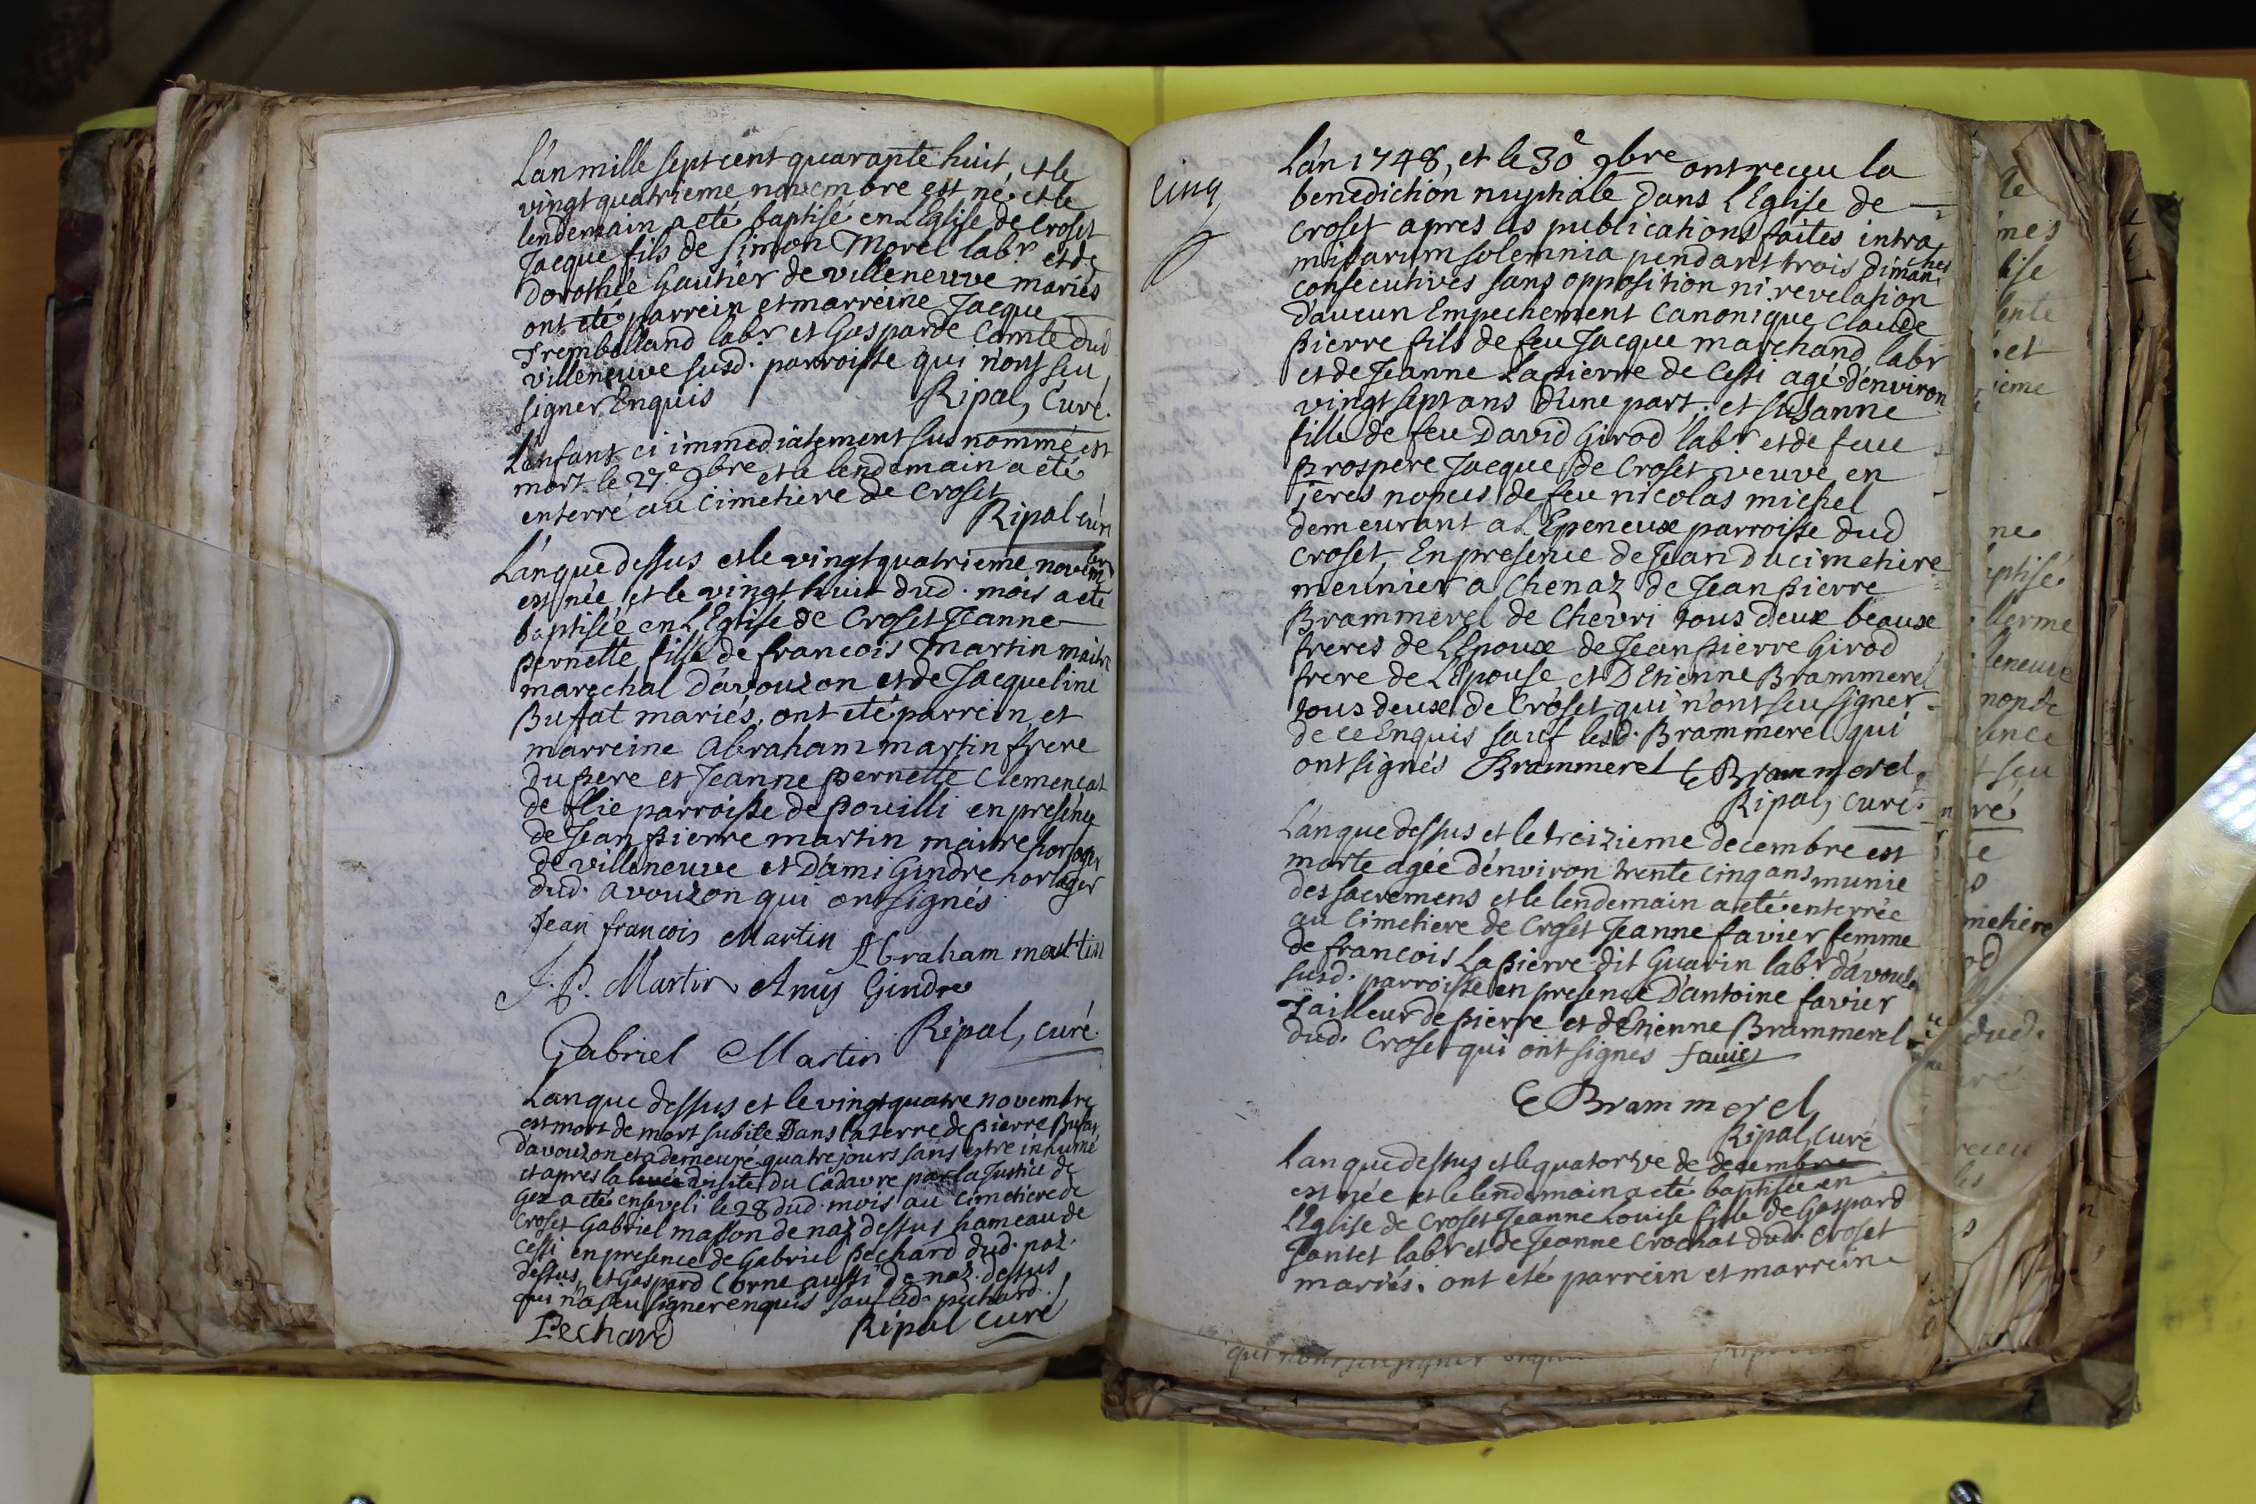 L'an mille sept cent quarante huit, et le
vingt quatrieme novembre est né et le
lendemain a eté baptisé en L'Eglise de Croset
Jacque fils de Simon Morel labr. et de
Dorothée Gautier de villeneuve mariés
ont eté parrein et marreine Jacque
Trembelland labr. et Gasparde Comte dud
villeneuve susd. parroisse qui n'ont seu
signer Enquis Ripal, Curé.
L'enfant ci immediatement sus nommé est
mort le 27e. 9bre et le lendemain a eté
enterré au Cimetiere de Croset
Ripal curé
L'an que dessus et le vingt quatrieme novembre
est née et le vingt huit dud. mois a eté
baptisée en L'Eglise de Croset Jeanne
pernette fille de francois Martin maitre
marechal d'avouzon et de Jacqueline
Buffat mariés. ont eté parrein et
marreine Abraham martin frere
du pere et Jeanne pernette Clemencat
de flie parroisse de pouilli en presence
de Jean pierre martin maitre horloger
de villeneuve et D'ami Gindre horloger
dud. avouzon qui ont signés
Jean francois Martin
Abraham martin
J. P. Martin Amy Gindre
Ripal, curé.
Gabriel Martin
L'an que dessus et le vingt quatre novembre
est mort de mort subite Dans la terre de pierre Bufat
d'avouzon et a demeuré quatre jours sans estre inhumé
et apres la visite du Cadavre par la Justice de
Gex a eté enseveli le 28 dud. mois au Cimetiere de
Croset Gabriel masson de naz dessus hameau de
Cessi en presence de Gabriel pechard dud. naz.
dessus, et Gaspard Corne aussi de naz. dessus
qui n'a seu signer enquis sauf led. pechard.
Pechard Ripal Curé
cinq
L'an 1748, et le 30e 9bre ont receu la
benediction nuptiale Dans L'Eglise de
Croset apres les publications faites intra
missarum solemnia pendant trois dimanches
consecutives sans opposition ni revelation
D'aucun Empechement Canonique Claude
pierre fils de feu Jacque marchand labr
et de Jeanne Lapierre de Cessi agé d'environ
vingt sept ans D'une part. et Susanne
fille de feu David Girod labr. et de feue
prospere Jacque de Croset veuve en
1eres nopces de feu nicolas michel
demeurant a L'Epeneux parroisse dud
Croset. En presence de Jean Ducimetiere
meunier a Chenaz de Jean pierre
Brammerel de Chevri tous deux beaux
freres de L'Epoux de Jean pierre Girod
frere de L'Epouse et D'Etienne Brammerel
tous deux de Croset qui n'ont seu signer
de ce Enquis sauf lesd. Brammerel qui
ont signés Brammerel E Brammerel
Ripal, curé.
L'an que dessus et le treizieme decembre est
morte agée d'environ trente cinq ans munie
des sacremens et le lendemain a eté enterrée
au Cimetiere de Croset Jeanne favier femme
de francois Lapierre dit Guarin labr. d'avouzon
susd. parroisse en presence D'antoine favier
Tailleur de pierre et d'Etienne Brammerel
dud. Croset qui ont signés favier
E Brammerel
Ripal, curé
L'an que dessus et le quatorze de decembre
est née et le lendemain a eté baptisée en
L'Eglise de Croset Jeanne Louise fille de Gaspard
Jantet labr. et de Jeanne Crochat dud. Croset
mariés. ont eté parrein et marreine